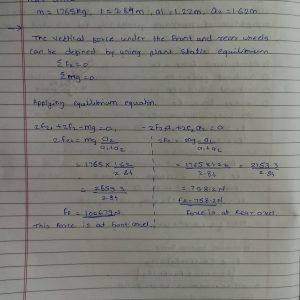 m = 1765 kg, l = 2.84 m, a1 = 1.22 m, a2 = 1.62 m
→ The vertical force under the front and rear wheels
can be defined by using plant static equilibrium
ΣFz = 0
Σmg = 0
Applying equilibrium equation.
2Fz1 + 2Fz2 - mg = 0, - 2Fz1a1 + 2Fz2a2 = 0
2Fz1 = mg a2 / a1+a2
2Fz2 = mg a1 / a1+a2
= 1765 × 1.62 / 2.84
= 1765 × 1.22 / 2.84 = 2153.3 / 2.84
= 2859.3 / 2.84
= 758.2 N
Fz = 758.2 N
Fz = 1006.79 N
Force is at rear axel.
This force is at front axel.